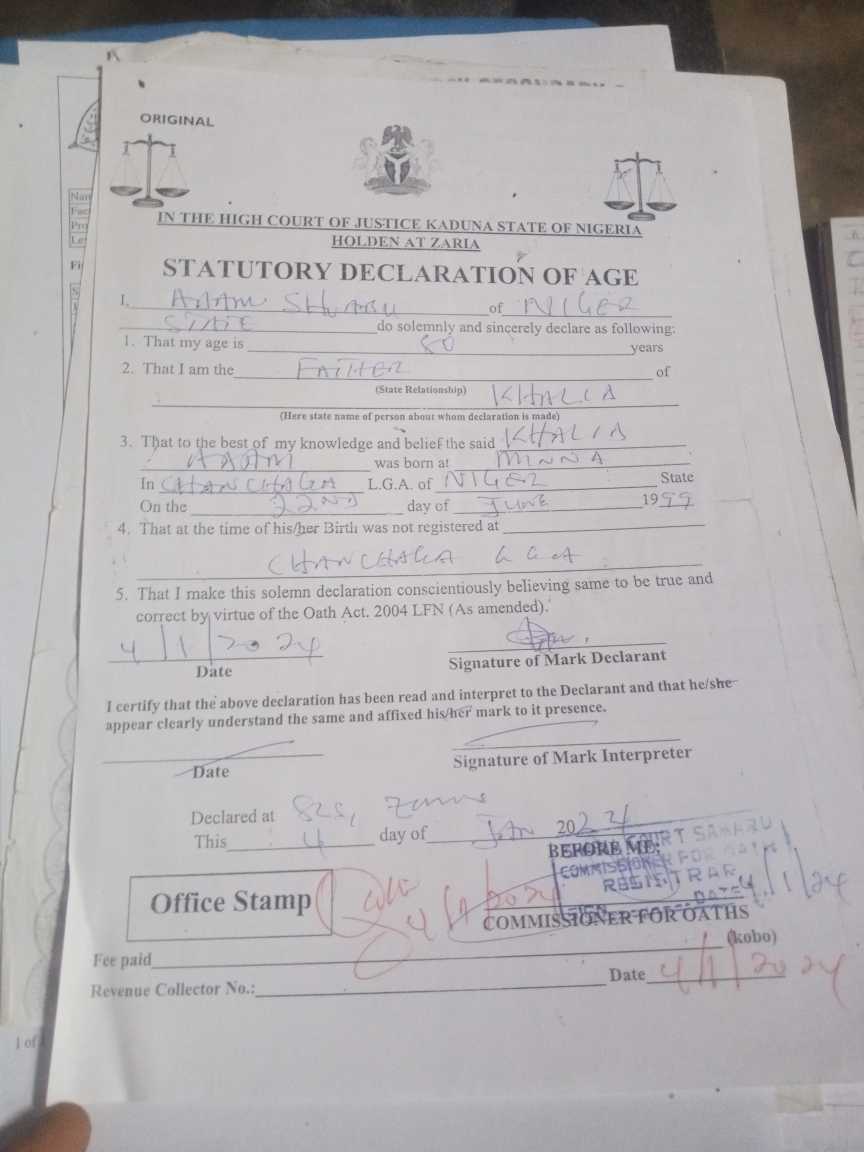 ORIGINAL
IN THE HIGH COURT OF JUSTICE KADUNA STATE OF NIGERIA
HOLDEN AT ZARIA
STATUTORY DECLARATION OF AGE
I, ADAM SHUAIBU of NIGER
STATE do solemnly and sincerely declare as following:
1. That my age is 80 years
2. That I am the FATHER of
(State Relationship) KHALID
(Here state name of person about whom declaration is made)
3. That to the best of my knowledge and belief the said KHALID
ADAM was born at MINNA
In CHANCHAGA L.G.A. of NIGER State
On the 22ND day of JUNE 1999
4. That at the time of his/her Birth was not registered at
CHANCHAGA L G A
5. That I make this solemn declaration conscientiously believing same to be true and
correct by virtue of the Oath Act. 2004 LFN (As amended).
4/1/2024
Date Signature of Mark Declarant
I certify that the above declaration has been read and interpret to the Declarant and that he/she
appear clearly understand the same and affixed his/her mark to it presence.
Date Signature of Mark Interpreter
Declared at
This 4 day of Jan 2024
COURT SAMARU
BEFORE ME:
COMMISSIONER FOR OATH
REGISTRAR
DATE 4/1/24
Office Stamp
4/1/2024
COMMISSIONER FOR OATHS
(kobo)
Fee paid
Revenue Collector No.: Date 4/1/2024
Nam
Fac
Pro
Le
1 of